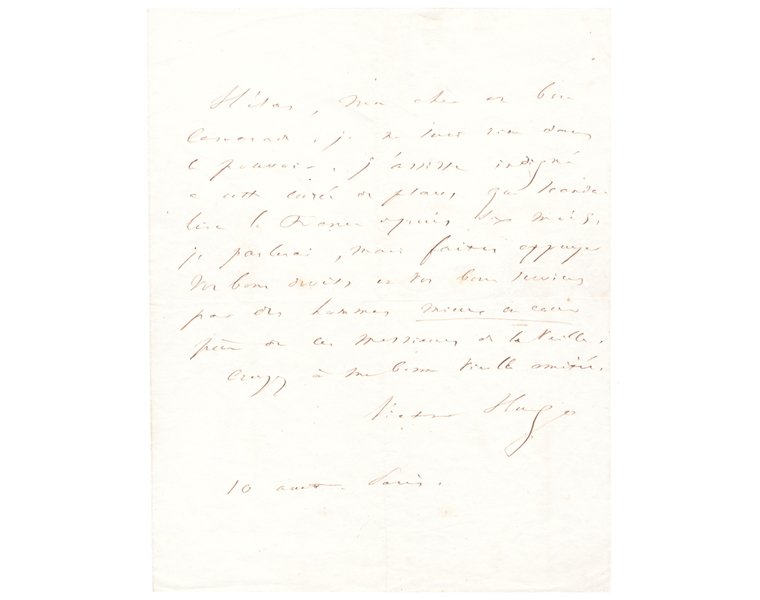 Hélas, mon cher et bon
camarade, je ne suis rien dans
le pouvoir. j'assiste indigné
à cette curée de places qui scanda-
lise la France depuis six mois.
je parlerai, mais faites appuyer
vos bons droits et vos bons services
par des hommes mieux en cour
près de ces messieurs de la veille.
Croyez à ma bonne vieille amitié.
Victor Hugo
10 août. Paris.